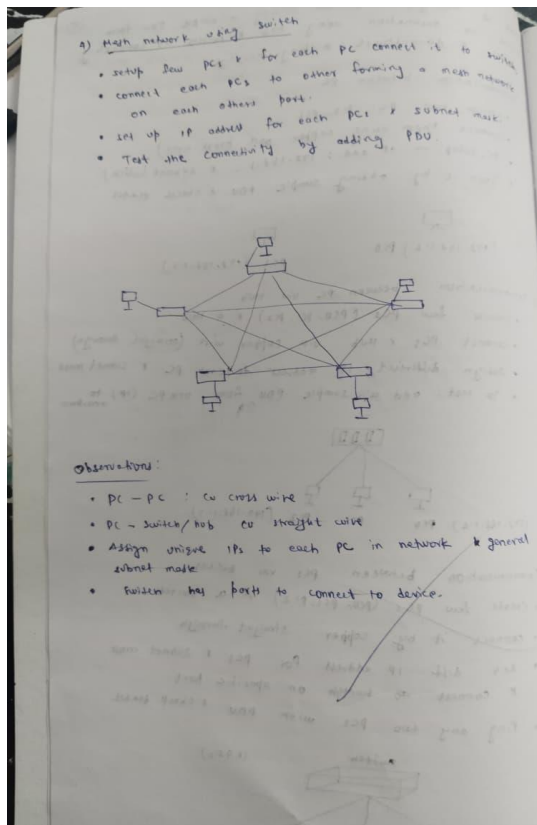 4) Mesh network using switch
• setup few PCs & for each PC connect it to switch
• connect each PCs to other forming a mesh network
on each others port.
• set up IP address for each PCs & subnet mask.
• Test the connectivity by adding PDU.
Observations:
• PC - PC : cu cross wire
• PC - switch/hub cu straight wire
• Assign unique IPs to each PC in network & general
subnet mask
• Switch has ports to connect to device.